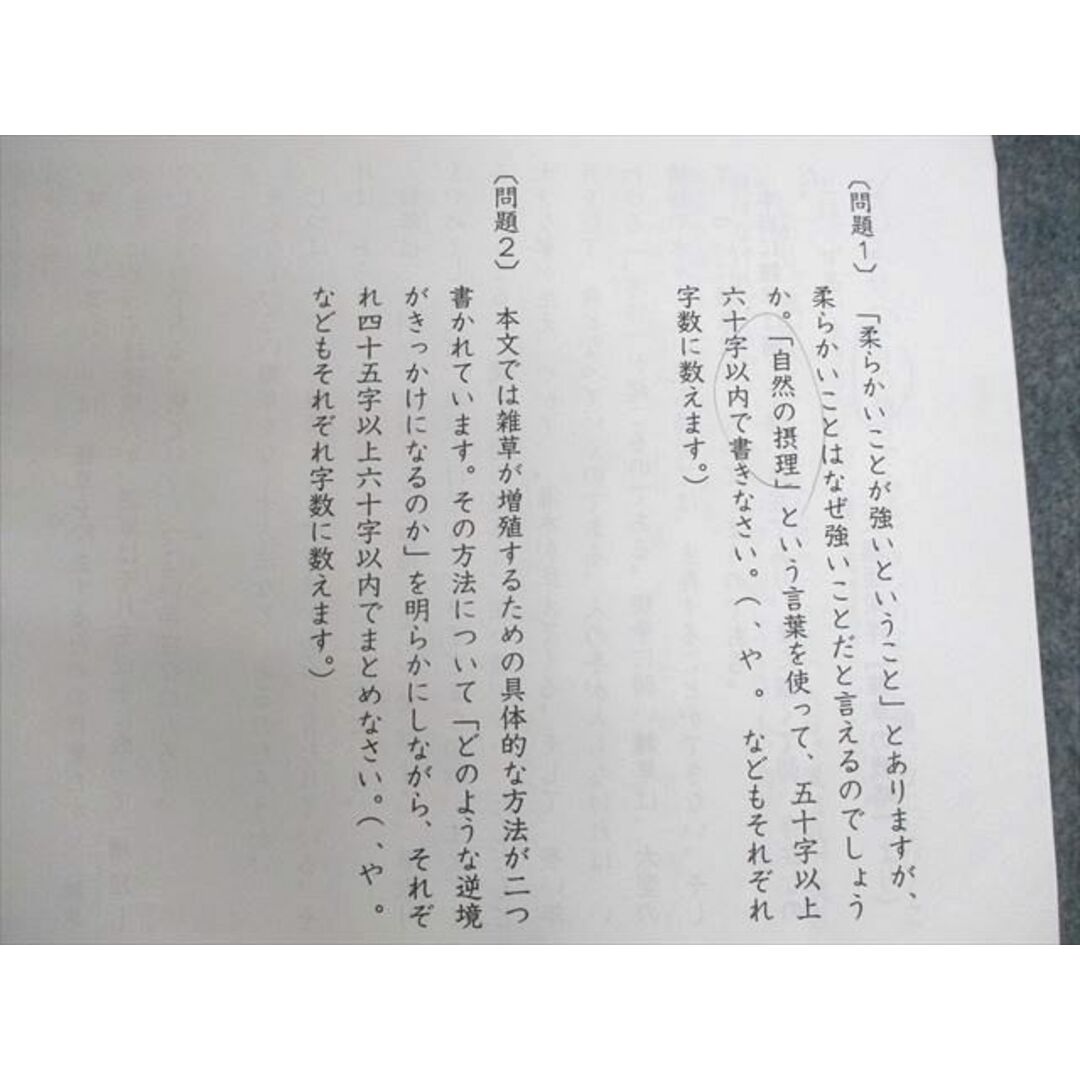 〔問題1〕
「柔らかいことが強いということ」とありますが、
柔らかいことはなぜ強いことだと言えるのでしょう
か。「自然の摂理」という言葉を使って、五十字以上
六十字以内で書きなさい。（、や。などもそれぞれ
字数に数えます。）
〔問題2〕
本文では雑草が増殖するための具体的な方法が二つ
書かれています。その方法について「どのような逆境
がきっかけになるのか」を明らかにしながら、それぞ
れ四十五字以上六十字以内でまとめなさい。（、や。
などもそれぞれ字数に数えます。）